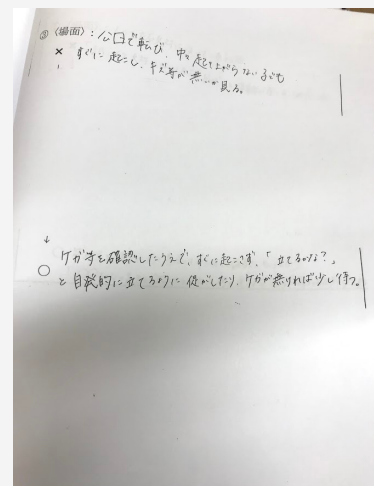 ③〈場面〉:公園で転び、中々起き上がらない子ども
× すぐに起こし、キズ等が無いか見る。
↓
ケガ等を確認したうえで、すぐに起こさず、「立てるかな?」
○ と自発的に立てるように促がしたり、ケガが無ければ少し待つ。